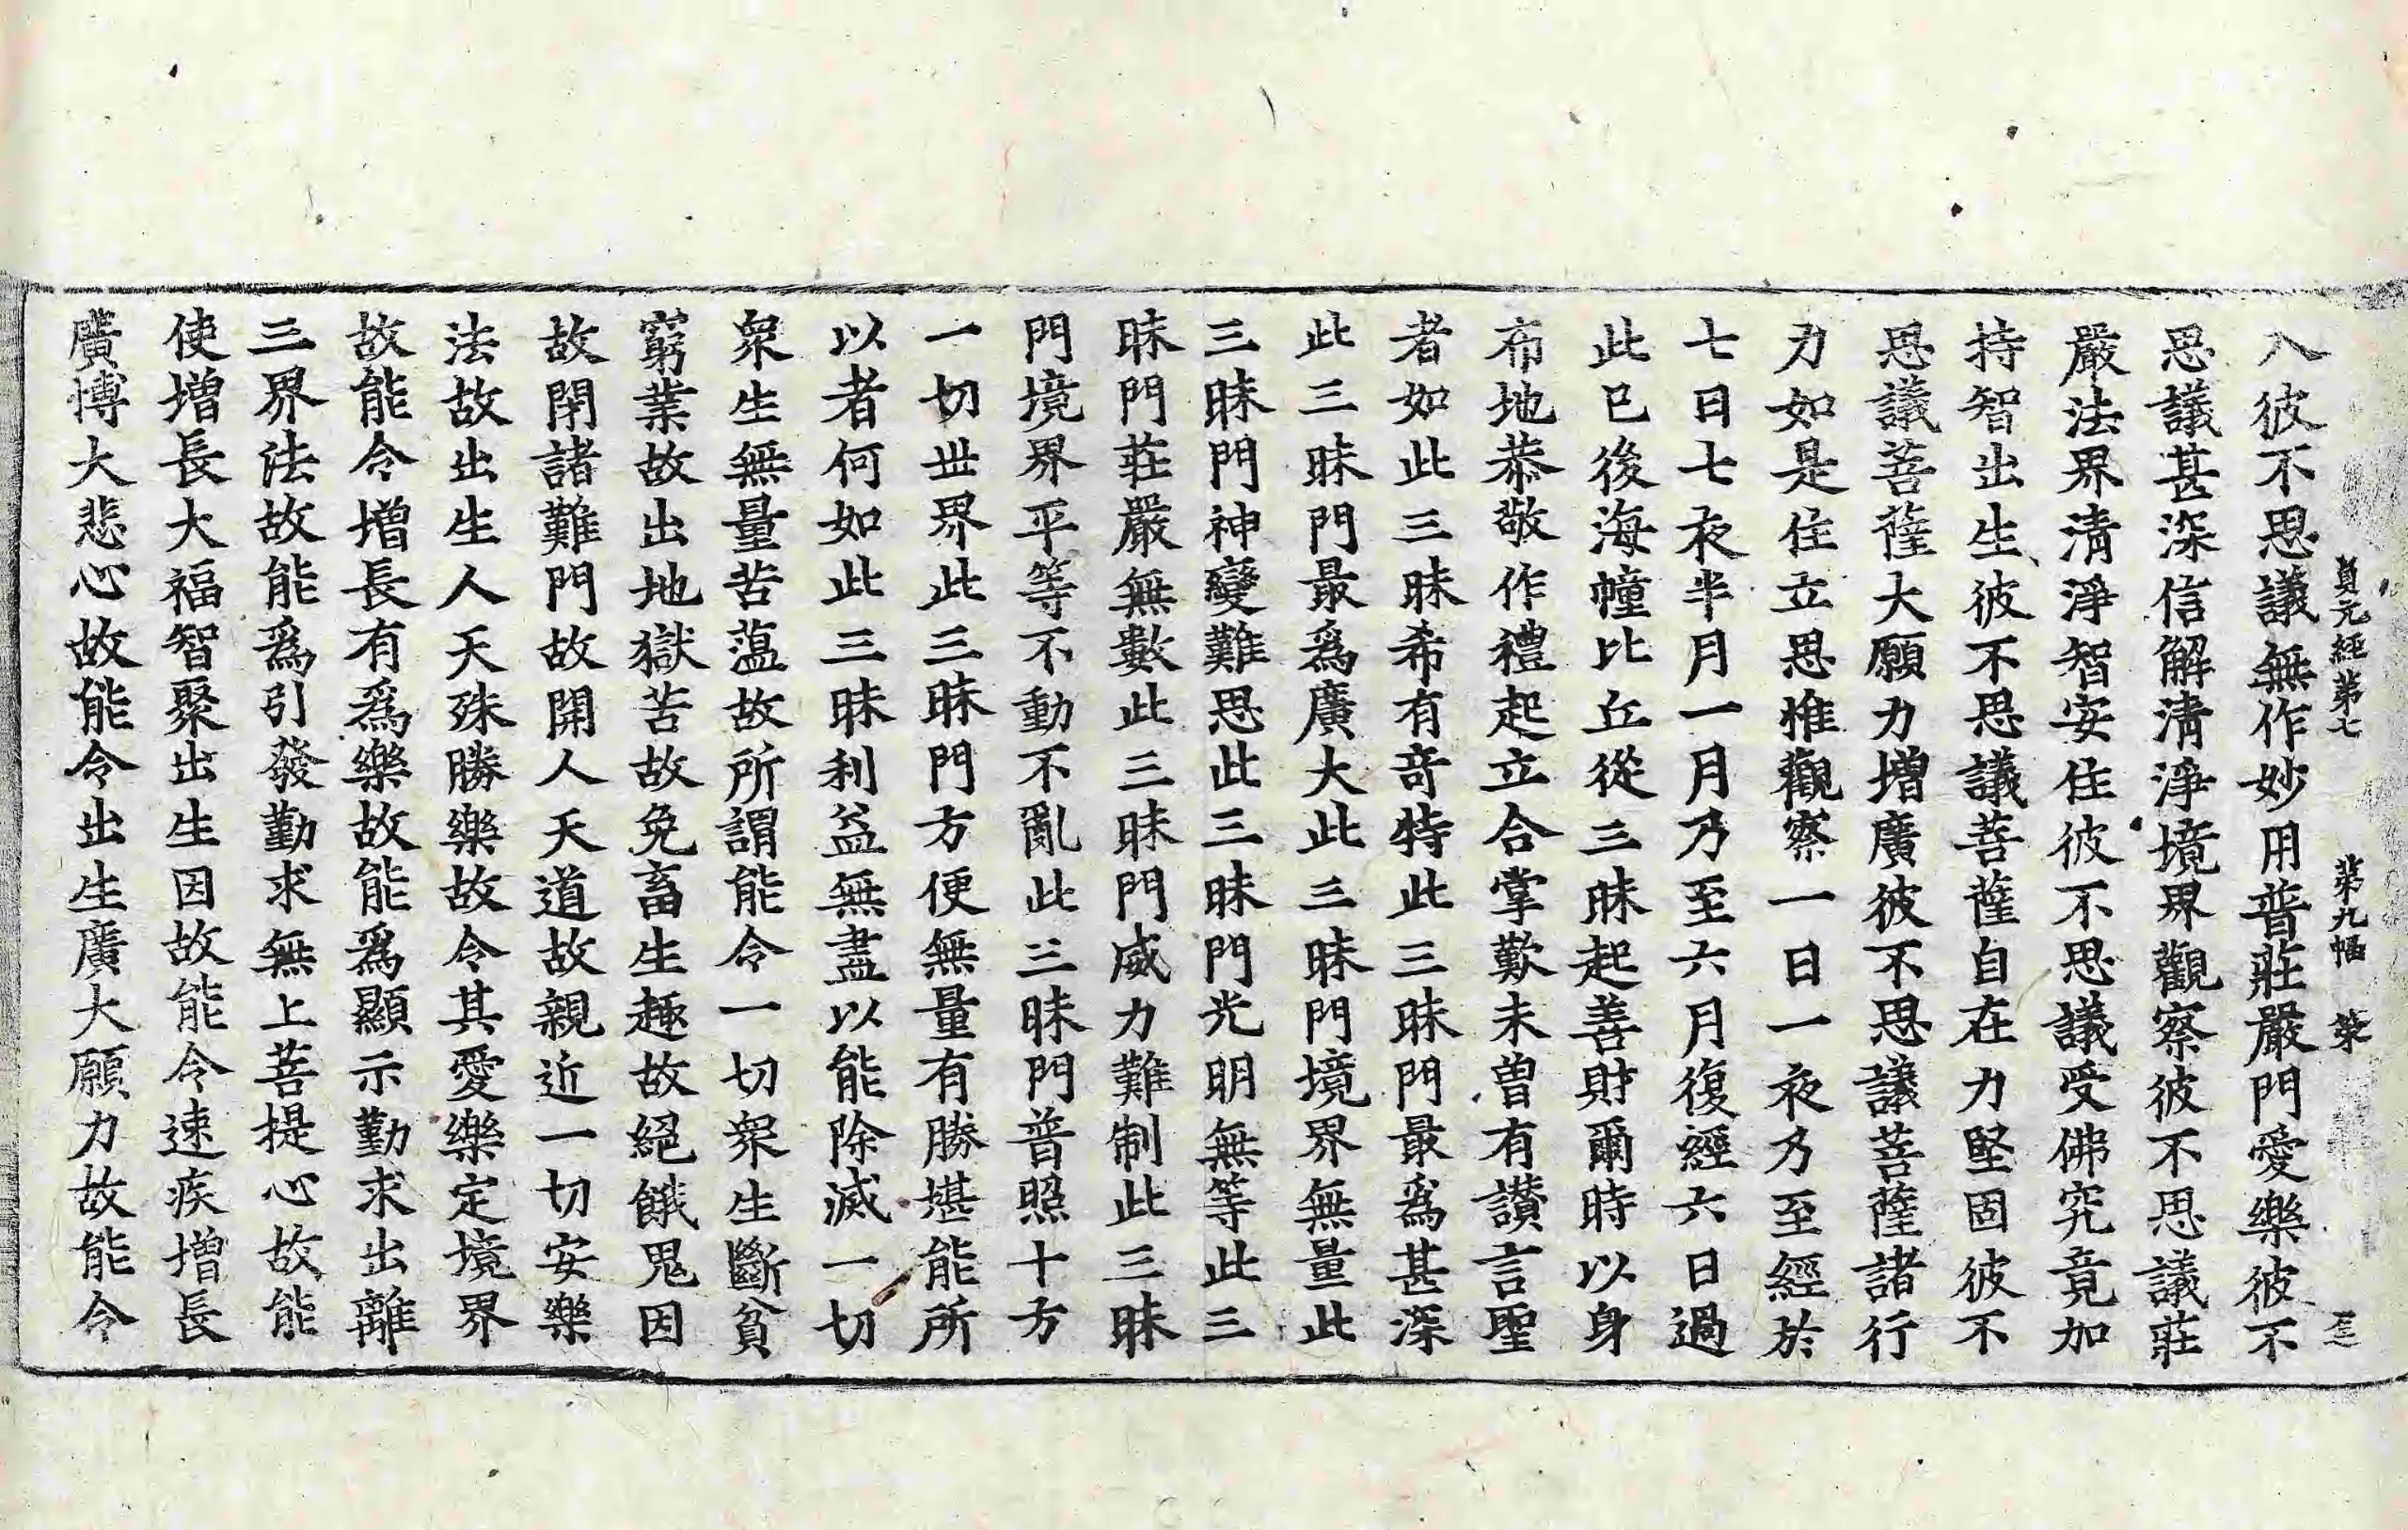 貞元經第七 第九幅 染
入彼不思議無作妙用普莊嚴門愛樂彼不
思議甚深信解清淨境界觀察彼不思議莊
嚴法界清淨智安住彼不思議受佛究竟加
持智出生彼不思議菩薩自在力堅固彼不
思議菩薩大願力增廣彼不思議菩薩諸行
力如是住立思惟觀察一日一夜乃至經於
七日七夜半月一月乃至六月復經六日過
此已後海幢比丘從三昧起善財爾時以身
布地恭敬作禮起立合掌歎未曾有讚言聖
者如此三昧希有竒特此三昧門最爲甚深
此三昧門最爲廣大此三昧門境界無量此
三昧門神變難思此三昧門光明無等此三
昧門莊嚴無數此三昧門威力難制此三昧
門境界平等不動不亂此三昧門普照十方
一切世界此三昧門方便無量有勝堪能所
以者何如此三昧利益無盡以能除滅一切
衆生無量苦蕰故所謂能令一切衆生斷貧
窮業故出地獄苦故免畜生趣故絕餓鬼因
故閉諸難門故開人天道故親近一切安樂
法故出生人天殊勝樂故令其愛樂定境界
故能令增長有爲樂故能爲顯示勤求出離
三界法故能爲引發勤求無上菩提心故能
使增長大福智聚出生因故能令速疾增長
廣博大悲心故能令出生廣大願力故能令